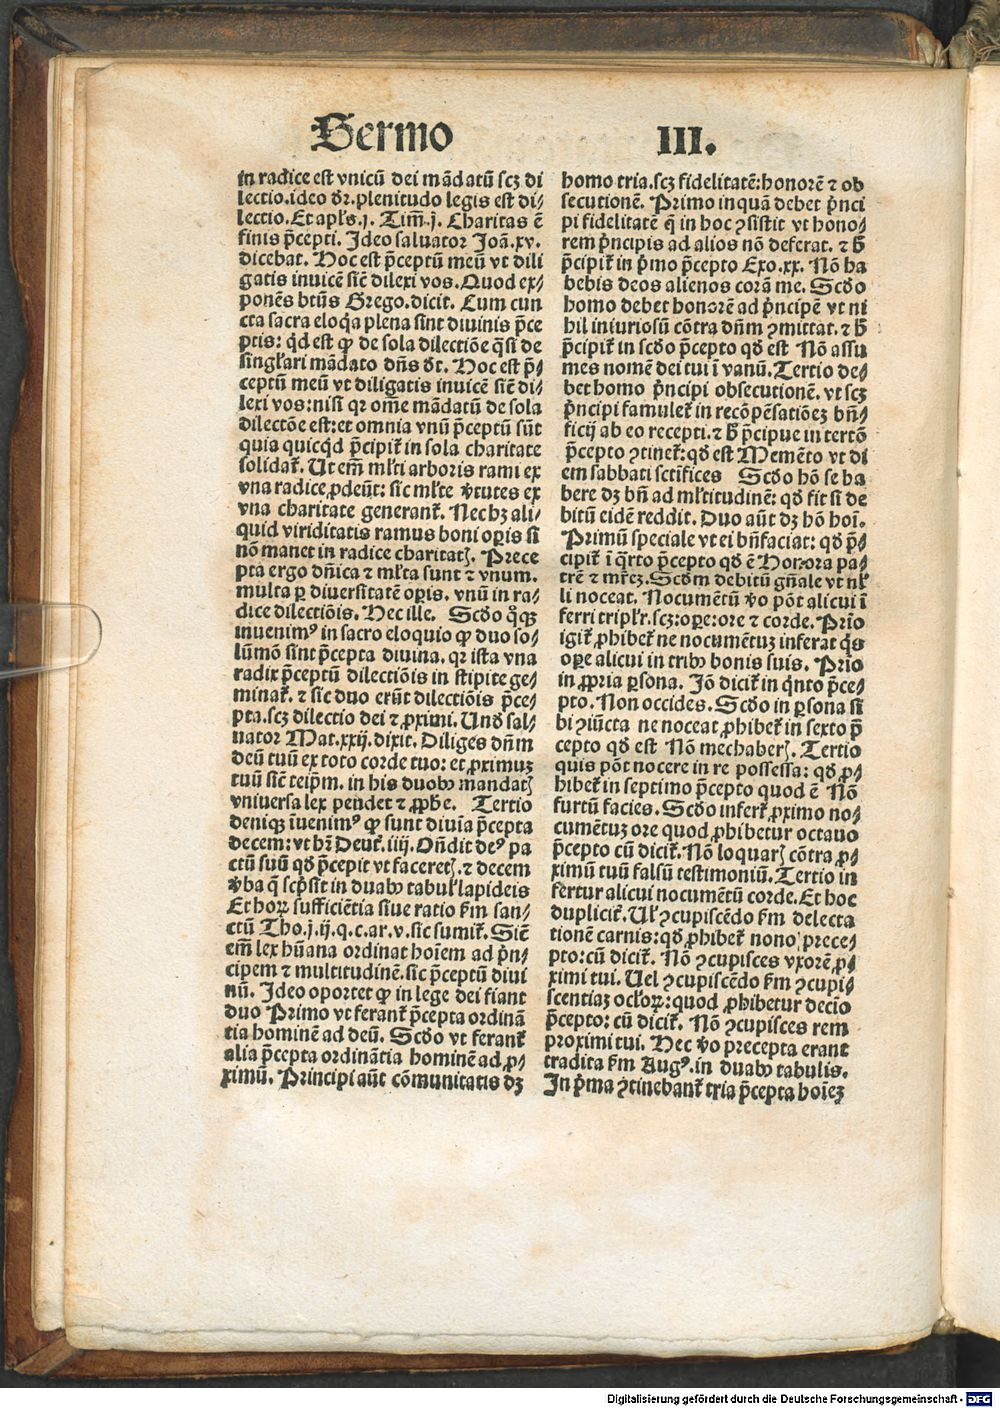 Sermo III.
in radice est vnicū dei mādatū scꝫ di
lectio. ideo dr̄. plenitudo legis est di⸗
lectio. Et apl's. j. Tim̄. j. Charitas ē
finis p̄cepti. Ideo saluator Joā. xv.
dicebat. Hoc est p̄ceptū meū vt dili
gatis inuicē sic̄ dilexi vos. Quod ex⸗
ponēs bt̄us Grego. dicit. Cum cun
cta sacra eloq̄a plena sint diuinis p̄ce
ptis: qd̄ est ꝙ de sola dilectiōe q̄si de
singl'ari mādato dn̄s dt̄. Hoc est p̄⸗
ceptū meū vt diligatis inuicē sic̄ di⸗
lexi vos: nisi qꝛ om̄e mādatū de sola
dilectōe est: et omnia vnū p̄ceptū sūt
quia quicqd̄ p̄cipit᷑ in sola charitate
solidat᷑. Ut em̄ ml'ti arboris rami ex
vna radice ꝓdeūt: sic ml'te v̓tutes ex
vna charitate generant᷑. Nec hꝫ ali⸗
quid viriditatis ramus boni oꝑis si
nō manet in radice charitatꝭ. Prece
pta ergo dn̄ica ⁊ ml'ta sunt ⁊ vnum.
multa ꝑ diuersitatē oꝑis. vnū in ra⸗
dice dilectiōis. Hec ille. Scd̄o q̊qꝫ
inuenimꝰ in sacro eloquio ꝙ duo so⸗
lūmō sint p̄cepta diuina. qꝛ ista vna
radix p̄ceptū dilectiōis in stipite ge⸗
minat᷑. ⁊ sic duo erūt dilectiōis p̄ce⸗
pta. scꝫ dilectio dei ⁊ ꝓximi. Und̄ sal⸗
uator Mat. xxij. dixit. Diliges dn̄m
deū tuū ex toto corde tuo: et ꝓximuꝫ
tuū sic̄ teip̄m. in his duobꝰ mandatꝭ
vniuersa lex pendet ⁊ ꝓph̄e. Tertio
deniqꝫ īuenimꝰ ꝙ sunt diuīa p̄cepta
decem: vt hr̄ Deut᷑. iiij. On̄dit deꝰ pa
ctū suū qd̄ p̄cepit vt faceretꝭ. ⁊ decem
v̓ba q̄ scp̄sit in duabꝰ tabul' lapideis
Et hoꝝ sufficiētia siue ratio fm̄ san⸗
ctū Tho. j. ij. q. c. ar. v. sic sumit᷑. Sic̄
em̄ lex hūana ordinat hoīem ad p̄n⸗
cipem ⁊ multitudinē. sic p̄ceptū diui
nū. Ideo oportet ꝙ in lege dei fiant
duo Primo vt ferant᷑ p̄cepta ordinā
tia hominē ad deū. Scd̄o vt ferant᷑
alia p̄cepta ordinātia hominē ad ꝓ⸗
ximū. Principi aūt cōmunitatis dꝫ
homo tria. scꝫ fidelitatē: honorē ⁊ ob
secutionē. Primo inquā debet p̄nci
pi fidelitatē q̄ in hoc ꝯsistit vt hono⸗
rem p̄ncipis ad alios nō deferat. ⁊ h̄
p̄cipit᷑ in p̄mo p̄cepto Exo. xx. Nō ha
bebis deos alienos corā me. Scd̄o
homo debet honorē ad p̄ncipē vt ni
hil iniuriosū cōtra dn̄m ꝯmittat. ⁊ h̄
p̄cipit᷑ in scd̄o p̄cepto qd̄ est Nō assu
mes nomē dei tui ī vanū. Tertio de⸗
bet homo p̄ncipi obsecutionē. vt scꝫ
p̄ncipi famulet᷑ in recōpēsatiōeꝫ bn̄⸗
ficij ab eo recepti. ⁊ h̄ p̄cipue in tertō
p̄cepto ꝯtinet᷑: qd̄ est Memēto vt di
em sabbati sctīfices Scd̄o hō se ha
bere dꝫ bn̄ ad ml'titudinē: qd̄ fit si de
bitū eidē reddit. Duo aūt dꝫ hō hoī.
Primū speciale vt ei bn̄faciat: qd̄ p̄⸗
cipit᷑ ī q̄rto p̄cepto qd̄ ē Honora pa⸗
trē ⁊ mr̄eꝫ. Scd̄m debitū gn̄ale vt nl'
li noceat. Nocumētū v̓o pōt alicui ī
ferri tripl'r. scꝫ: oꝑe: ore ⁊ corde. Prīo
igit᷑ ꝓhibet᷑ ne nocumētuꝫ inferat q̄s
oꝑe alicui in tribꝰ bonis suis. Prīo
in ꝓpria ꝑsona. Iō dicit᷑ in q̄nto p̄ce⸗
pto. Non occides. Scd̄o in ꝑsona si
bi ꝯiūcta ne noceat ꝓhibet᷑ in sexto p̄
cepto qd̄ est Nō mechaberꝭ. Tertio
quis pōt nocere in re possessa: qd̄ ꝓ⸗
hibet᷑ in septimo p̄cepto quod ē Nō
furtū facies. Scd̄o infert᷑ ꝓximo no⸗
cumētuꝫ ore quod ꝓhibetur octauo
p̄cepto cū dicit᷑. Nō loquarꝭ cōtra ꝓ⸗
ximū tuū falsū testimoniū. Tertio in
fertur alicui nocumētū corde. Et hoc
duplicit᷑. Ul' ꝯcupiscēdo fm̄ delecta
tionē carnis: qd̄ ꝓhibet᷑ nono prece⸗
pto: cū dicit᷑. Nō ꝯcupisces vxorē ꝓ⸗
ximi tui. Uel ꝯcupiscēdo fm̄ ꝯcupi⸗
scentiaꝫ ocl'oꝝ: quod ꝓhibetur decīo
p̄cepto: cū dicit᷑. Nō ꝯcupisces rem
proximi tui. Hec v̓o precepta erant
tradita fm̄ Augꝰ. in duabꝰ tabulis.
In p̄ma ꝯtinebant᷑ tria p̄cepta hoīeꝫ
Digitalisierung gefördert durch die Deutsche Forschungsgemeinschaft - DFG